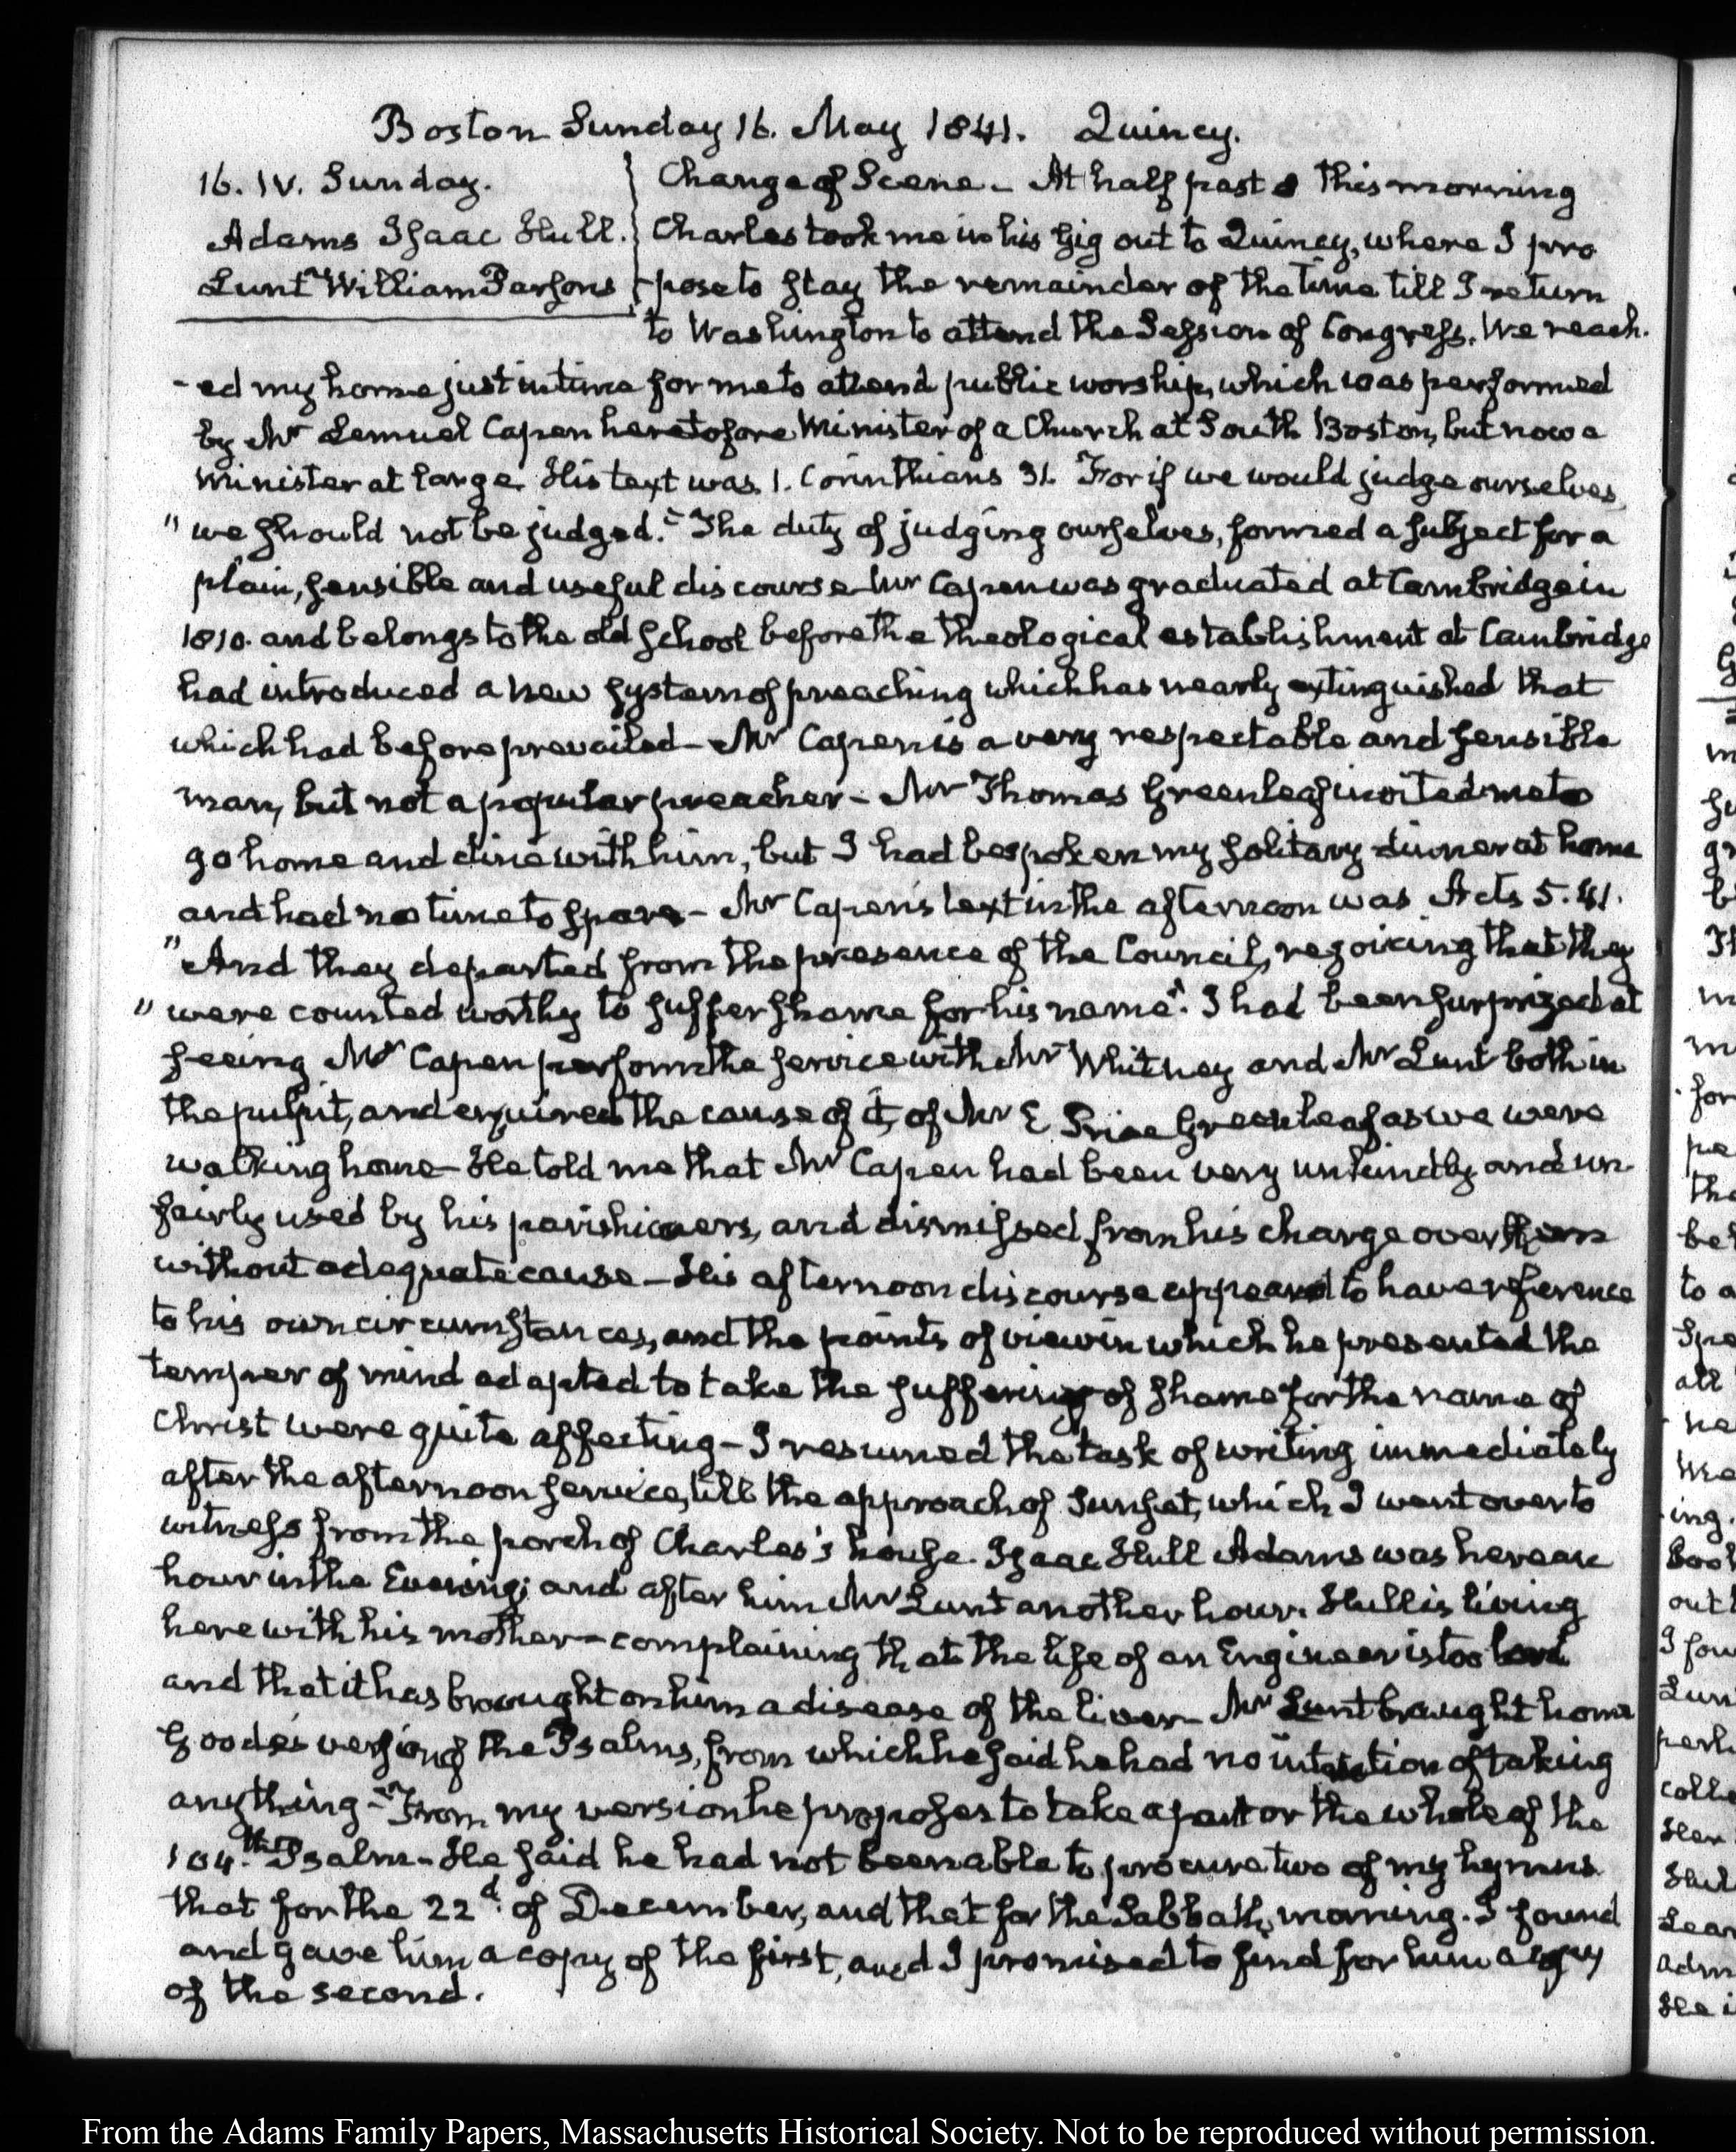 Boston Sunday 16. May 1841. Quincy.
16. IV. Sunday.
Adams Isaac Hull.
Lunt William Parsons
Change of Scene – At half past 8 this morning
Charles took me in his Gig out to Quincy, where I pro
-pose to stay the remainder of the time till I return
to Washington to attend the Session of Congress. We reach.
-ed my home just in time for me to attend public worship, which was performed
by Mr Lemuel Capen heretofore Minister of a Church at South Boston, but now a
minister at large. His text was 1. Corinthians 31. For if we would judge ourselves,
" we should not be judged." The duty of judging ourselves, formed a subject for a
plain, sensible and useful discourse – Mr Capen was graduated at Cambridge in
1810. and belongs to the old school before the theological establishment at Cambridge
had introduced a new system of preaching which has nearly extinguished that
which had before prevailed – Mr Capen is a very respectable and sensible
man, but not a popular preacher – Mr Thomas Greenleaf invited me to
go home and dine with him, but I had bespoken my solitary dinner at home
and had no time to spare – Mr Capen's text in the afternoon was Acts 5. 41.
"And they departed from the presence of the Council, rejoicing that they
" were counted worthy to suffer shame for his name". I had been surprized at
seeing Mr Capen perform the service with Mr Whitney and Mr Lunt both in
the pulpit, and enquired the cause of it, of Mr E Price Greenleaf as we were
walking home – He told me that Mr Capen had been very unkindly and un-
fairly used by his parishioners, and dismissed from his charge over them
without adequate cause – His afternoon discourse appeared to have reference
to his own circumstances, and the points of view in which he presented the
temper of mind adapted to take the suffering of shame for the name of
Christ were quite affecting – I resumed the task of writing immediately
after the afternoon service, till the approach of Sunset, which I went over to
witness from the porch of Charles's house. Isaac Hull Adams was here an
hour in the Evening; and after him Mr Lunt another hour. Hull is living
here with his mother – complaining that the life of an Engineer is too hard
and that it has brought on him a disease of the liver – Mr Lunt brought home
Goode's version of the Psalms, from which he said he had no intention of taking
anything – From my version he proposes to take a part or the whole of the
104th. Psalm – He said he had not been able to procure two of my hymns
that for the 22d. of December, and that for the Sabbath morning. I found
and gave him a copy of the first, and I promised to find for him a copy
of the second.
From the Adams Family Papers, Massachusetts Historical Society. Not to be reproduced without permission.